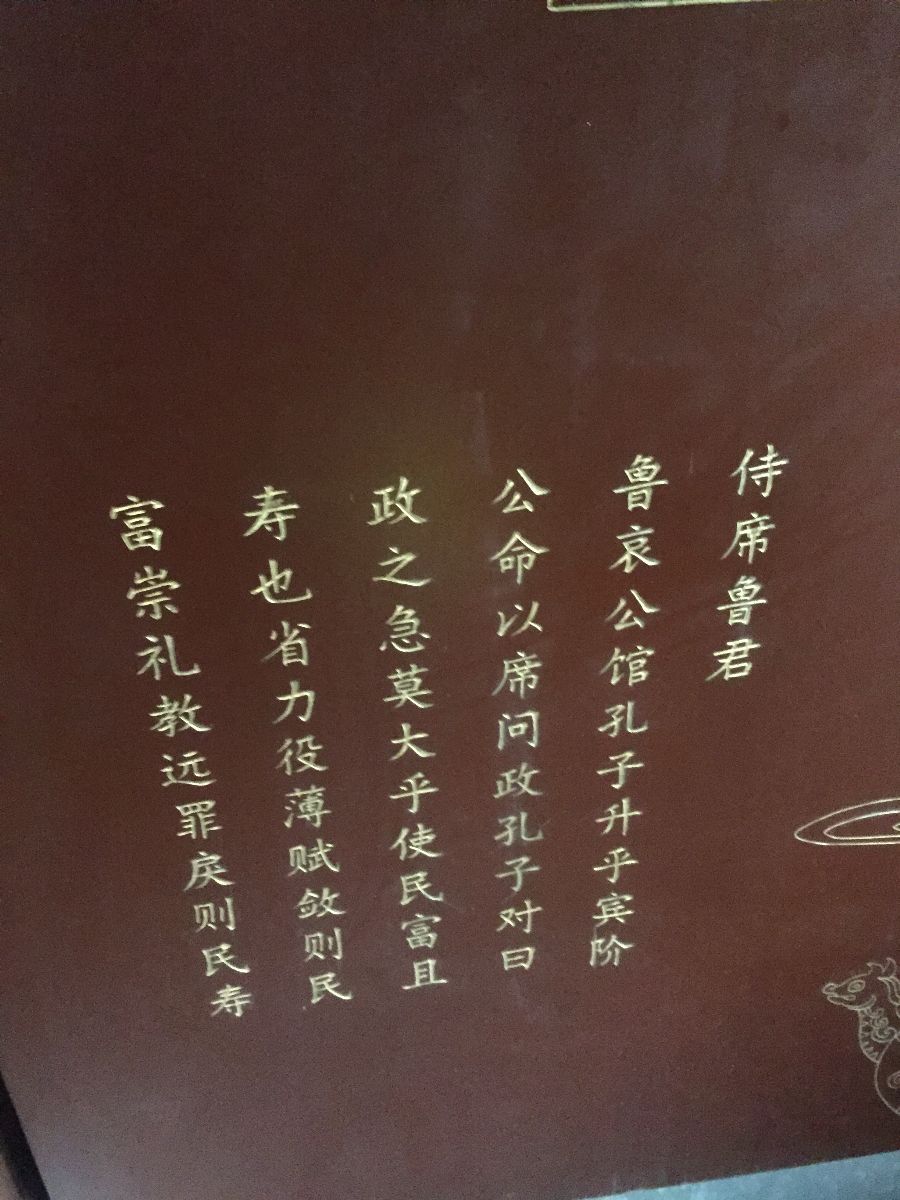 侍席鲁君
鲁哀公馆孔子升乎宾阶
公命以席问政孔子对曰
政之急莫大乎使民富且
寿也省力役薄赋敛则民
富崇礼教远罪戾则民寿